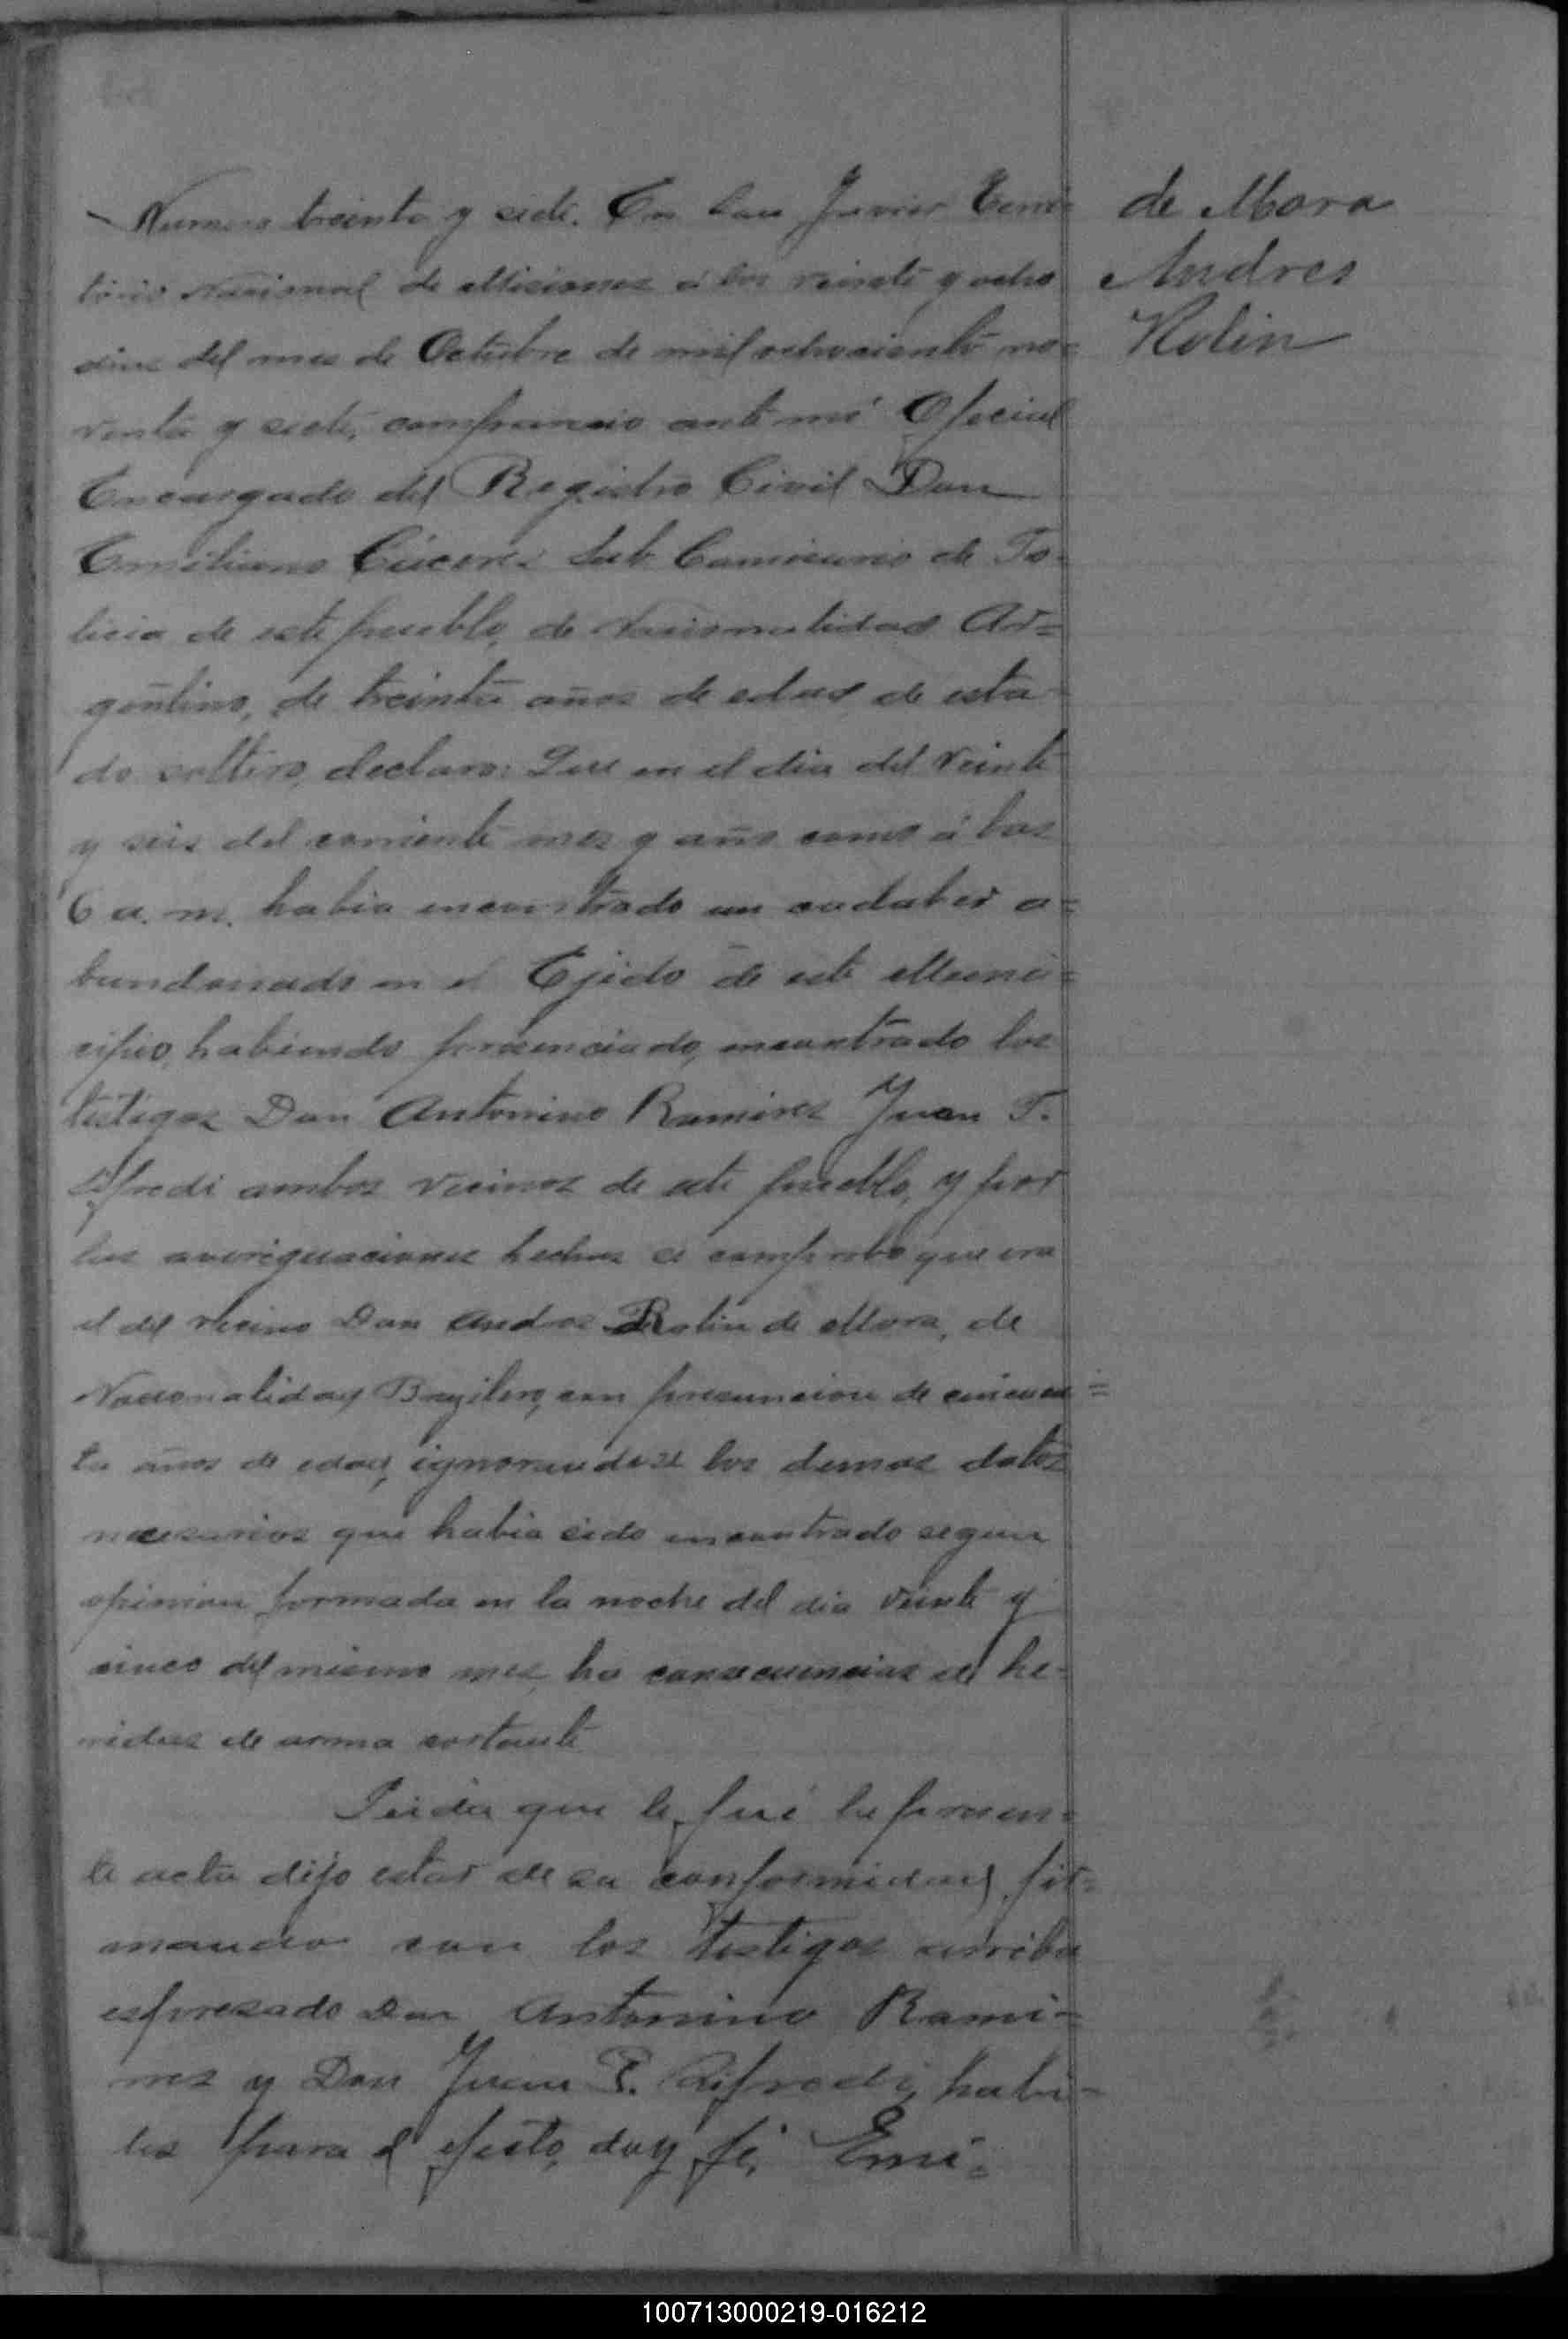 Numero treinta y siete. En San Javier Terri=
torio Nacional de Misiones á los veinte y ocho
dias del mes de Octubre de mil ochociento no=
venta y siete, comparecio ante mi Oficial
Encargado del Registro Civil Don
Emiliano Cáceres Sub Comisario de Po=
licia de este pueblo, de Nacionalidad Ar=
gentino, de treinta años de edad de esta
do soltero, declaro: Que en el dia del veinte
y seis del corriente mes y año como á las
6 a. m. habia encontrado un cadaber a=
bandonado en el Ejido de este Muni=
cipio, habiendo presenciado, encontrado los
testigos Don Antonino Ramires Juan P.
Sifredi ambos vecinos de este pueblo, y por
las averiguaciones hechas se comprobo que era
el del vecino Don Andres Rolin de Mora, de
Nacionalidad Brasilero, con presuncion de cincuen=
ta años de edad, ignorandose los demas datos
necesarios que habia sido encontrado segun
opinion formada en la noche del dia veinte y
cinco del mismo mes, ha consecuencias de he=
ridas de arma cortante
Leida que le fué la presen=
te acta dijo estar de su conformidad, fir=
mando con los testigos arriba
espresado Don Antonino Rami=
res y Don Juan P. Sifredi, habi=
les para el efecto, doy fé, Emi=
de Mora
Andres
Rolin
100713000219-016212